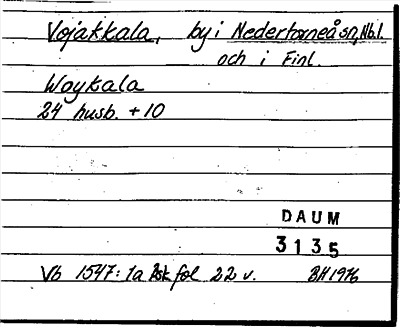 Vojakkala, by i Nedertorneå sn, Nb.l.
och i Finl.
Woykala
24 husb. + 10
DAUM
3135
Vb 1547: 1a fol 22 v. BH 1976